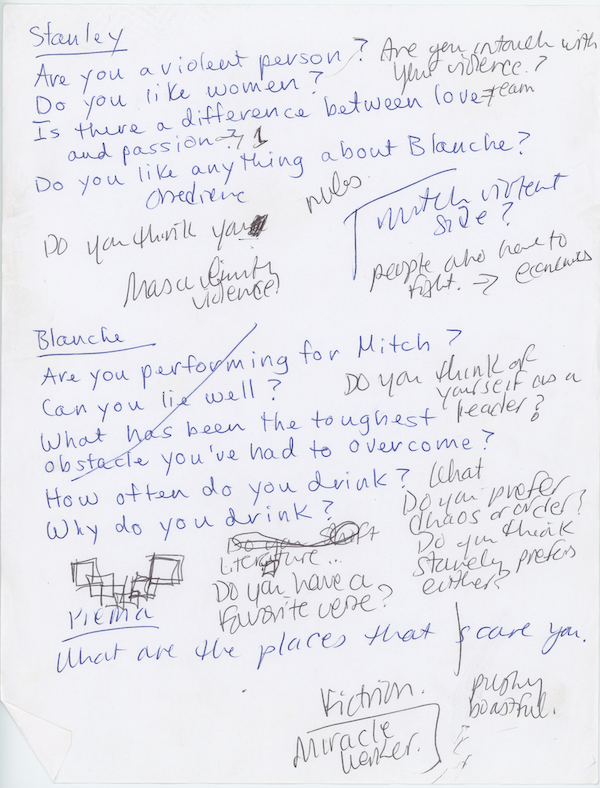 Stanley
Are you a violent person? Are you in touch with
your violence?
Do you like women?
Is there a difference between love team
and passion?
Do you like anything about Blanche?
Obedience
rules
Do you think you
Mitch violent
side?
Masculinity
violence?
people who have to
fight. → economics
Blanche
Are you performing for Mitch?
Can you lie well?
Do you think of
yourself as a
reader?
What has been the toughest
obstacle you've had to overcome?
How often do you drink? What
Why do you drink?
Do you prefer
chaos or order?
Do you think
Stanely prefers
either?
Do you
Literature...
Do you have a
favorite verse?
What are the places that scare you.
Fiction.
Miracle
Worker.
pushy
boastful.